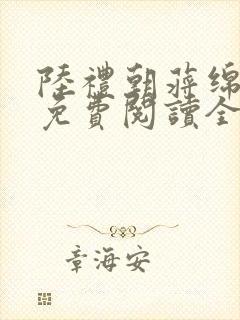 陸禮朝蔣绵
免費閱讀全
章海安